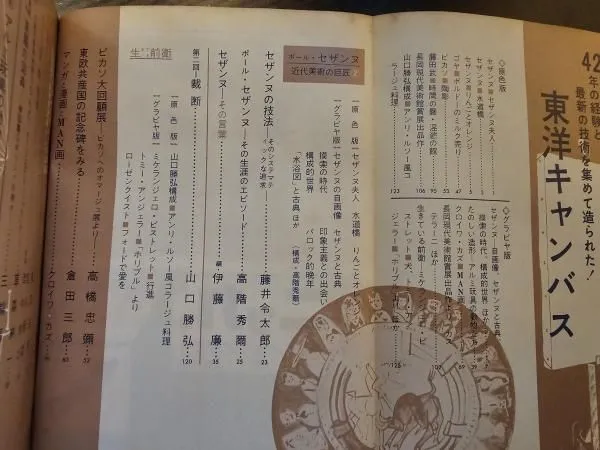 42年の経験と
最新の技術を集めて造られた!
東洋キャンバス
◇原色版
セザンヌ■セザンヌ夫人
セザンヌ■水道橋
セザンヌ■りんごとオレンジ
ゴヤ■ボルドーのミルク売り
ピカソ■陶彫
藤田武■時間の罠・淫欲の餌
長岡現代美術館賞展出品作
山口勝弘構成■アンリ・ルソー風コ
ラージュ料理
123
◇グラビヤ版
セザンヌ 自画像 セザンヌと古典
摸索の時代 構成的世界 ほか
たのしい造形 アルミ玩具の動物
クロイワ・カズ■MAN画
長岡現代美術館賞展出品作
テラ
生きている前衛
ストレット■犬
ジェラー■ホリブル
ポール・セザンヌ
近代美術の巨匠
〈原色版〉セザンヌ夫人 水道橋 りんごとオレ
〈グラビヤ版〉セザンヌの自画像 セザンヌと古典
摸索の時代 印象主義との出会い
構成的世界 バロック的晩年
「水浴図」と古典 ほか (構成・高階秀爾)
セザンヌの技法 そのシステマティックな追求 藤井令太郎 23
ポール・セザンヌ その生涯のエピソード 高階秀爾 25
セザンヌ その言葉 編 伊藤廉 35
第二回 裁断 山口勝弘 120
〈原色版〉山口勝弘構成■アンリ・ルソー風コラージュ料理
〈グラビヤ版〉ミケランジェロ・ピストレット■行進
トミー・アンジェラー■「ホリブル」より
ローゼンクイスト■フォードで愛を
ピカソ大回顧展 ピカソへのオマージュ展より 高橋忠彌 52
東欧共産国の記念碑をみる 倉田三郎 63
マンガ・漫画・MAN画 クロイワ・カズ